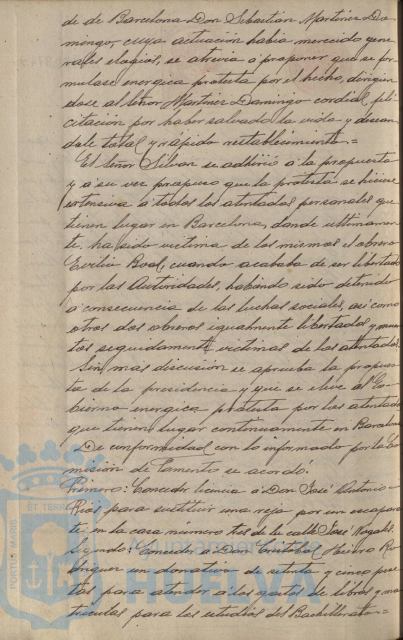 de de Barcelona Don Sebastián Martinez Do-
mingo, cuya actuación habia merecido gene-
rales elogios, se atrevia a proponer que se for-
mulase energica protesta por el hecho, dirigien
dose al Señor Martinez Domingo cordial feli-
citación por haber salvado la vida y desean
dole total y rápido restablecimiento.=
El Señor Silvan se adhirió á la propuesta
y a su vez propuso que la protesta se hiciese
extensiva a todos los atentados personales que
tienen lugar en Barcelona, donde ultimamen
te ha sido victima de los mismos el obrero
Evelio Boal, cuando acababa de ser libertado
por las Autoridades, habiendo sido detenido
a consecuencia de las luchas sociales, asi como
otros dos obreros igualmente libertados y muer
tos seguidamente victimas de los atentados.
Sin mas discusión se aprueba la propues
ta de la presidencia y que se eleve al Go-
bierno energica protesta por los atentados
que tienen lugar continuamente en Barcelona
De conformidad con lo informado por la Co
misión de Fomento se acordó:
Primero: Conceder licencia a Don José Antonio
Rios para sustituir una reja por un escapara
te en la casa número tres de la calle José Nogales
Segundo: Conceder a Don Cristobal Hierro Ro
driguez un donativo de setenta y cinco pese
tas para atender a los gastos de libros y ma-
triculas para los estudios del Bachillerato.=
PORTUS MARIS ET TERRAE
HUELVA